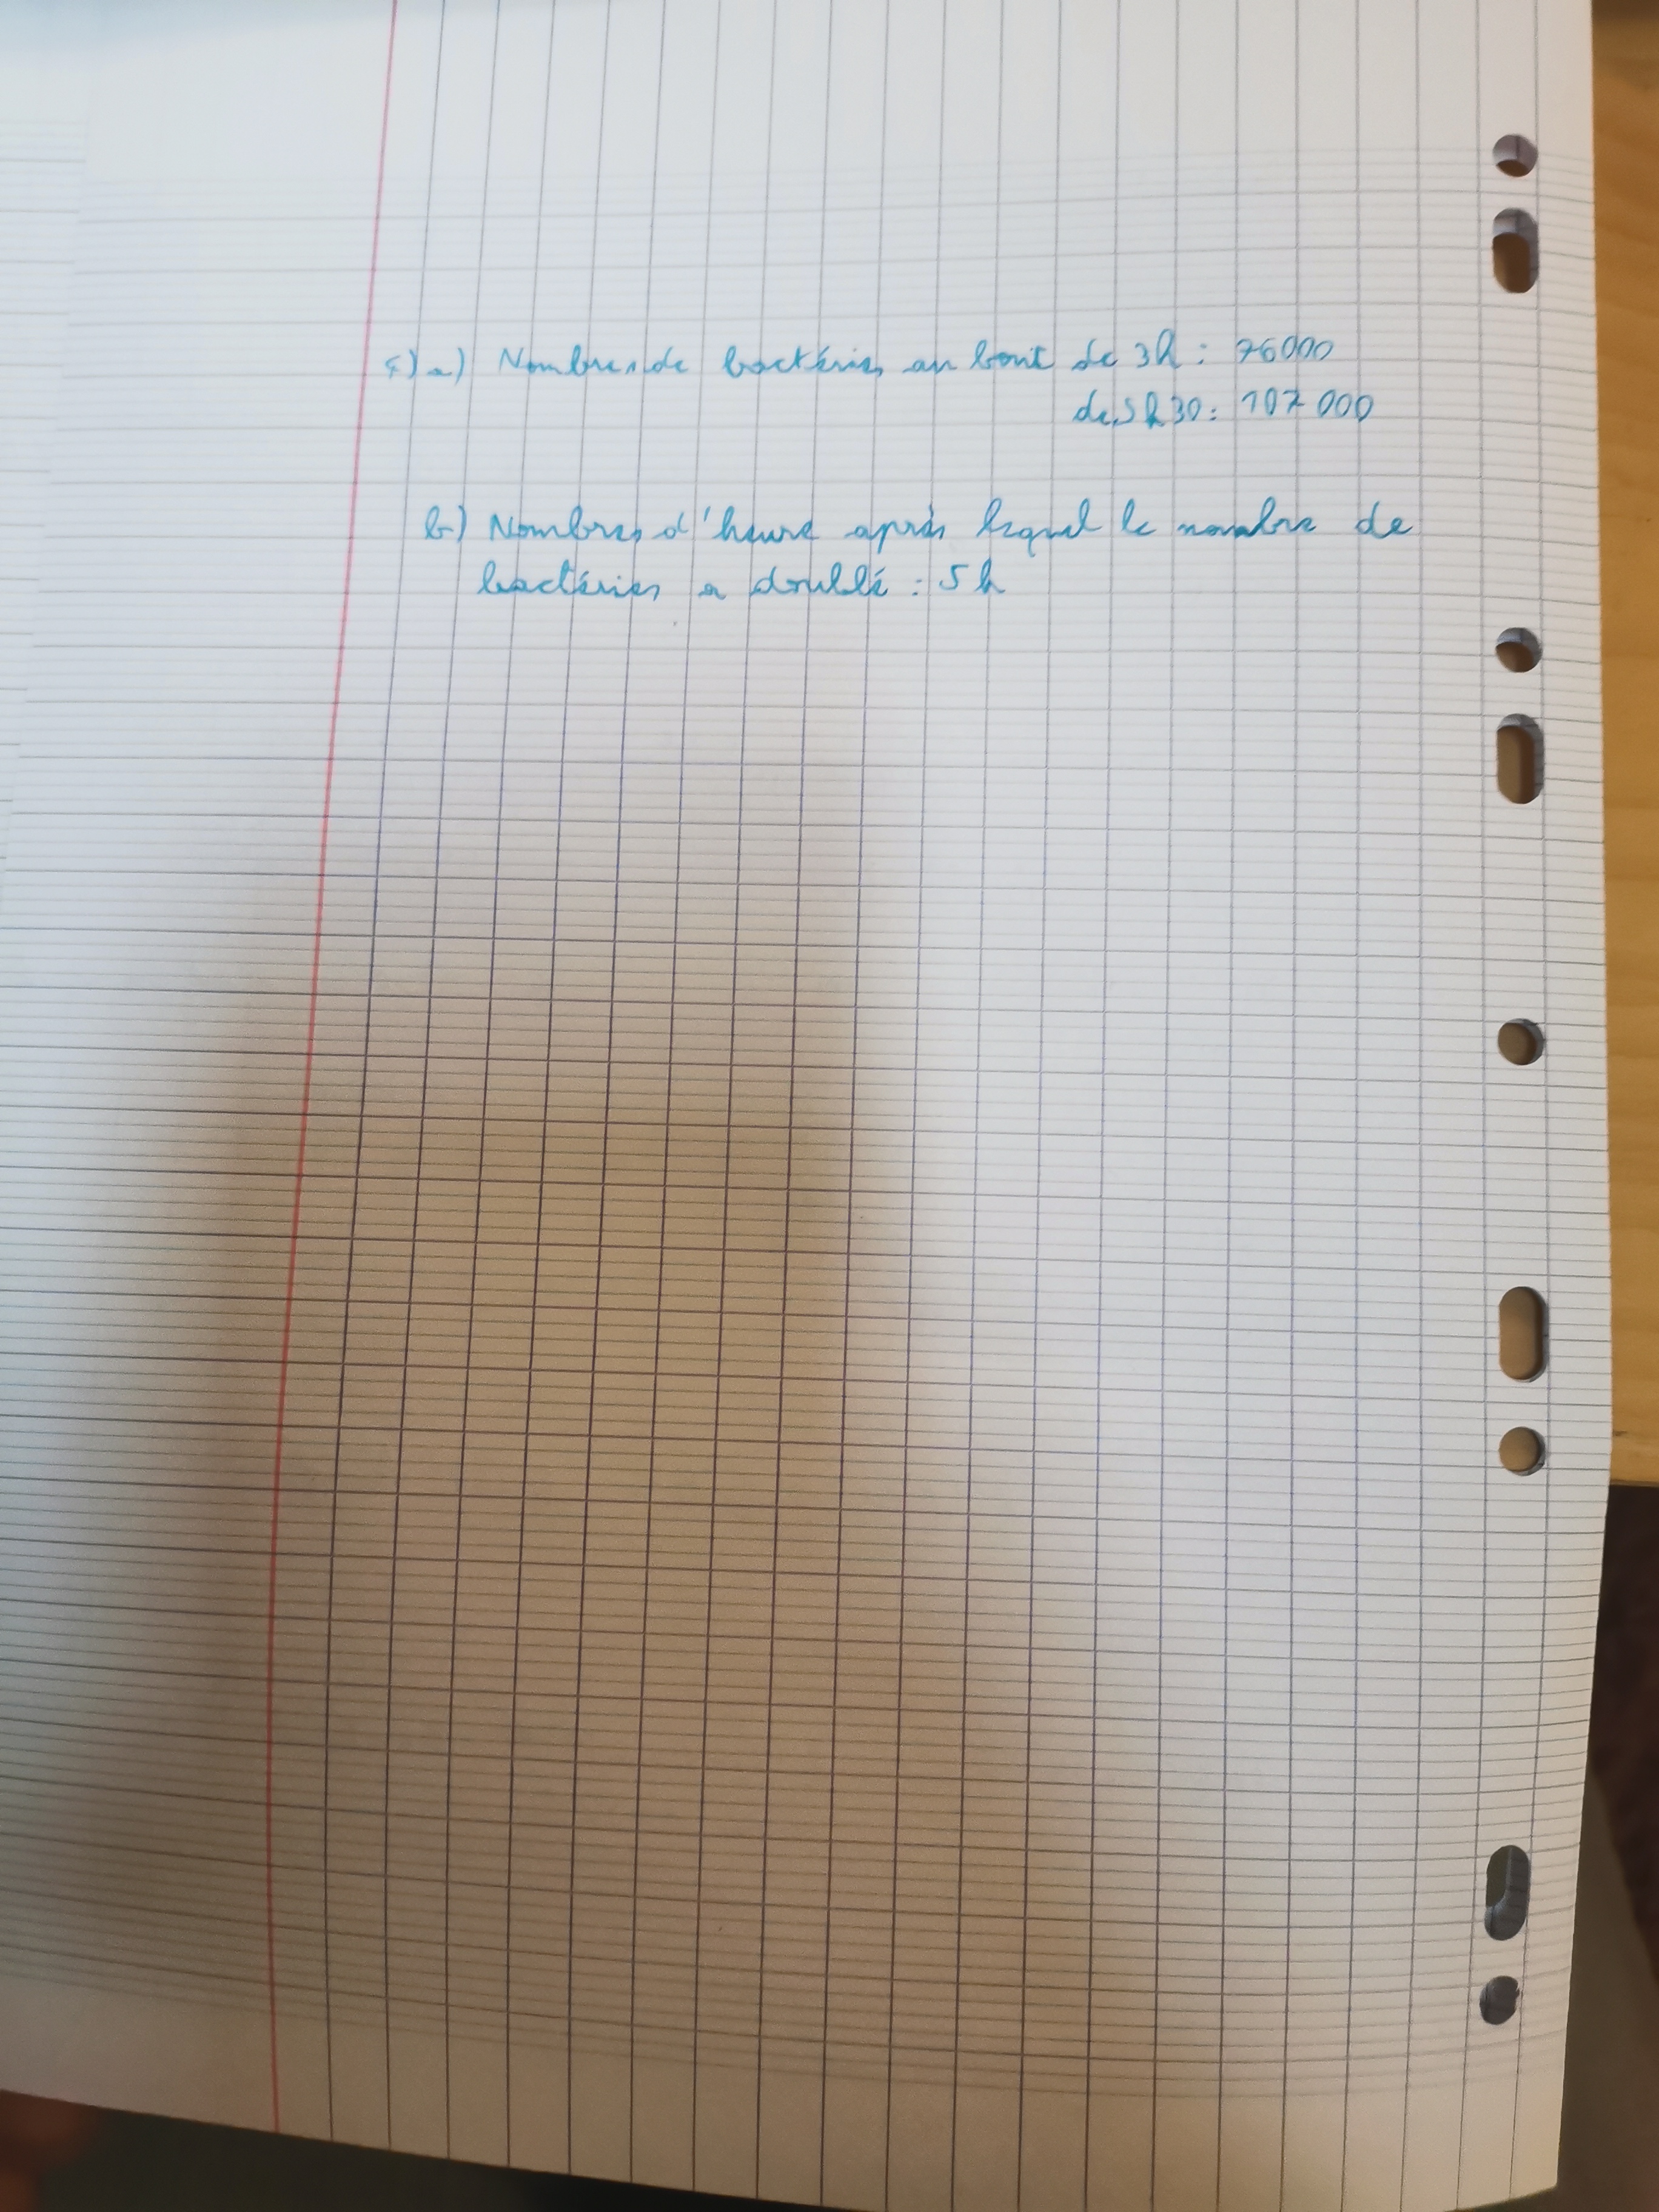 4) a) Nombres de bactéries au bout de 3h : 76000
de 5h30 : 107 000
b) Nombres d'heure après lequel le nombre de
bactéries a doublé : 5 h